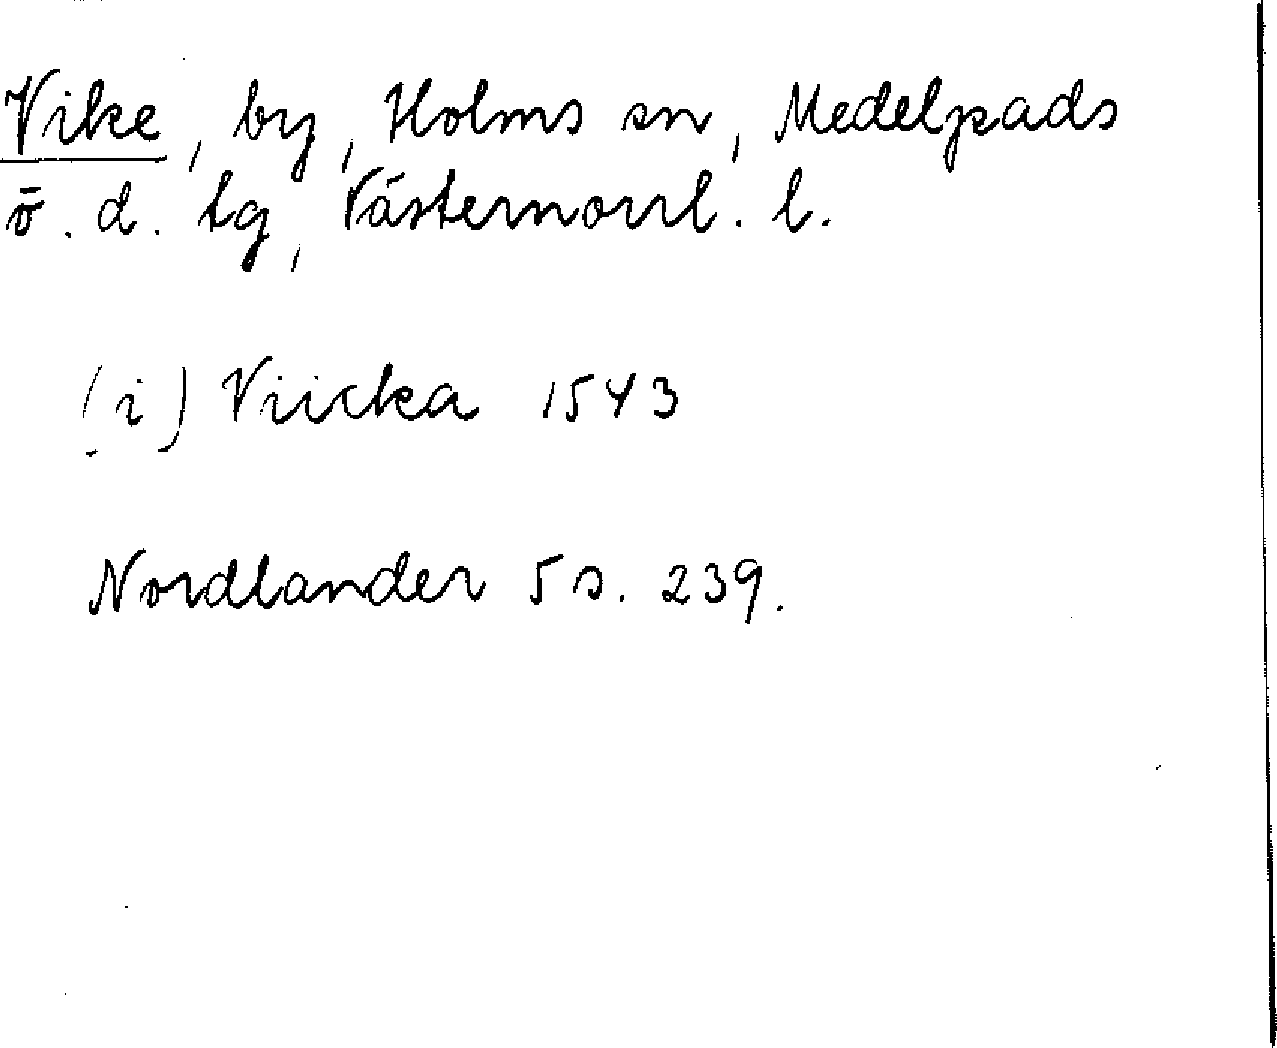 Vike, by, Holms sn, Medelpads
ö. d. tg, Västernorrl. l.
(i) Viicka 1543
Nordlander 5 s. 239.